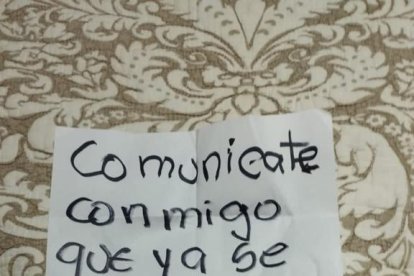 Comunicate
conmigo
que ya se